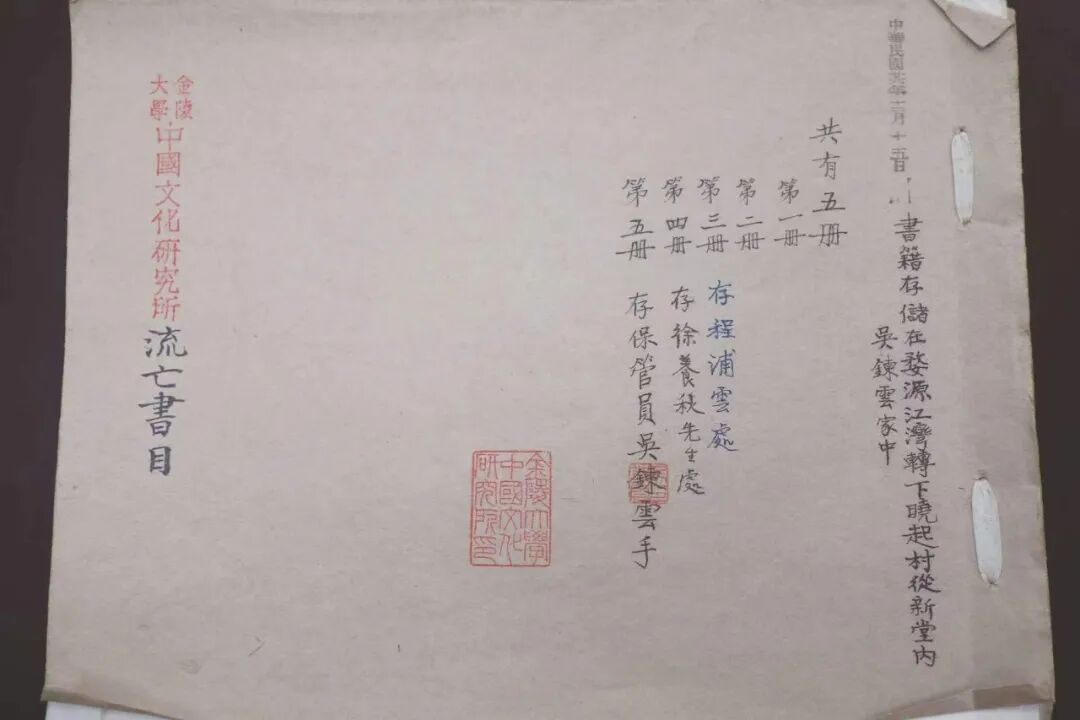 中華民國年月十五日
書籍存儲在婺源江灣轉下曉起村從新堂內
吳鍊雲家中
共有五册
第一册
第二册
第三册 存程浦雲處
第四册 存徐養秋先生處
第五册 存保管員吳鍊雲手
金陵大學
中國文化
研究所印
金陵大學中國文化研究所流亡書目